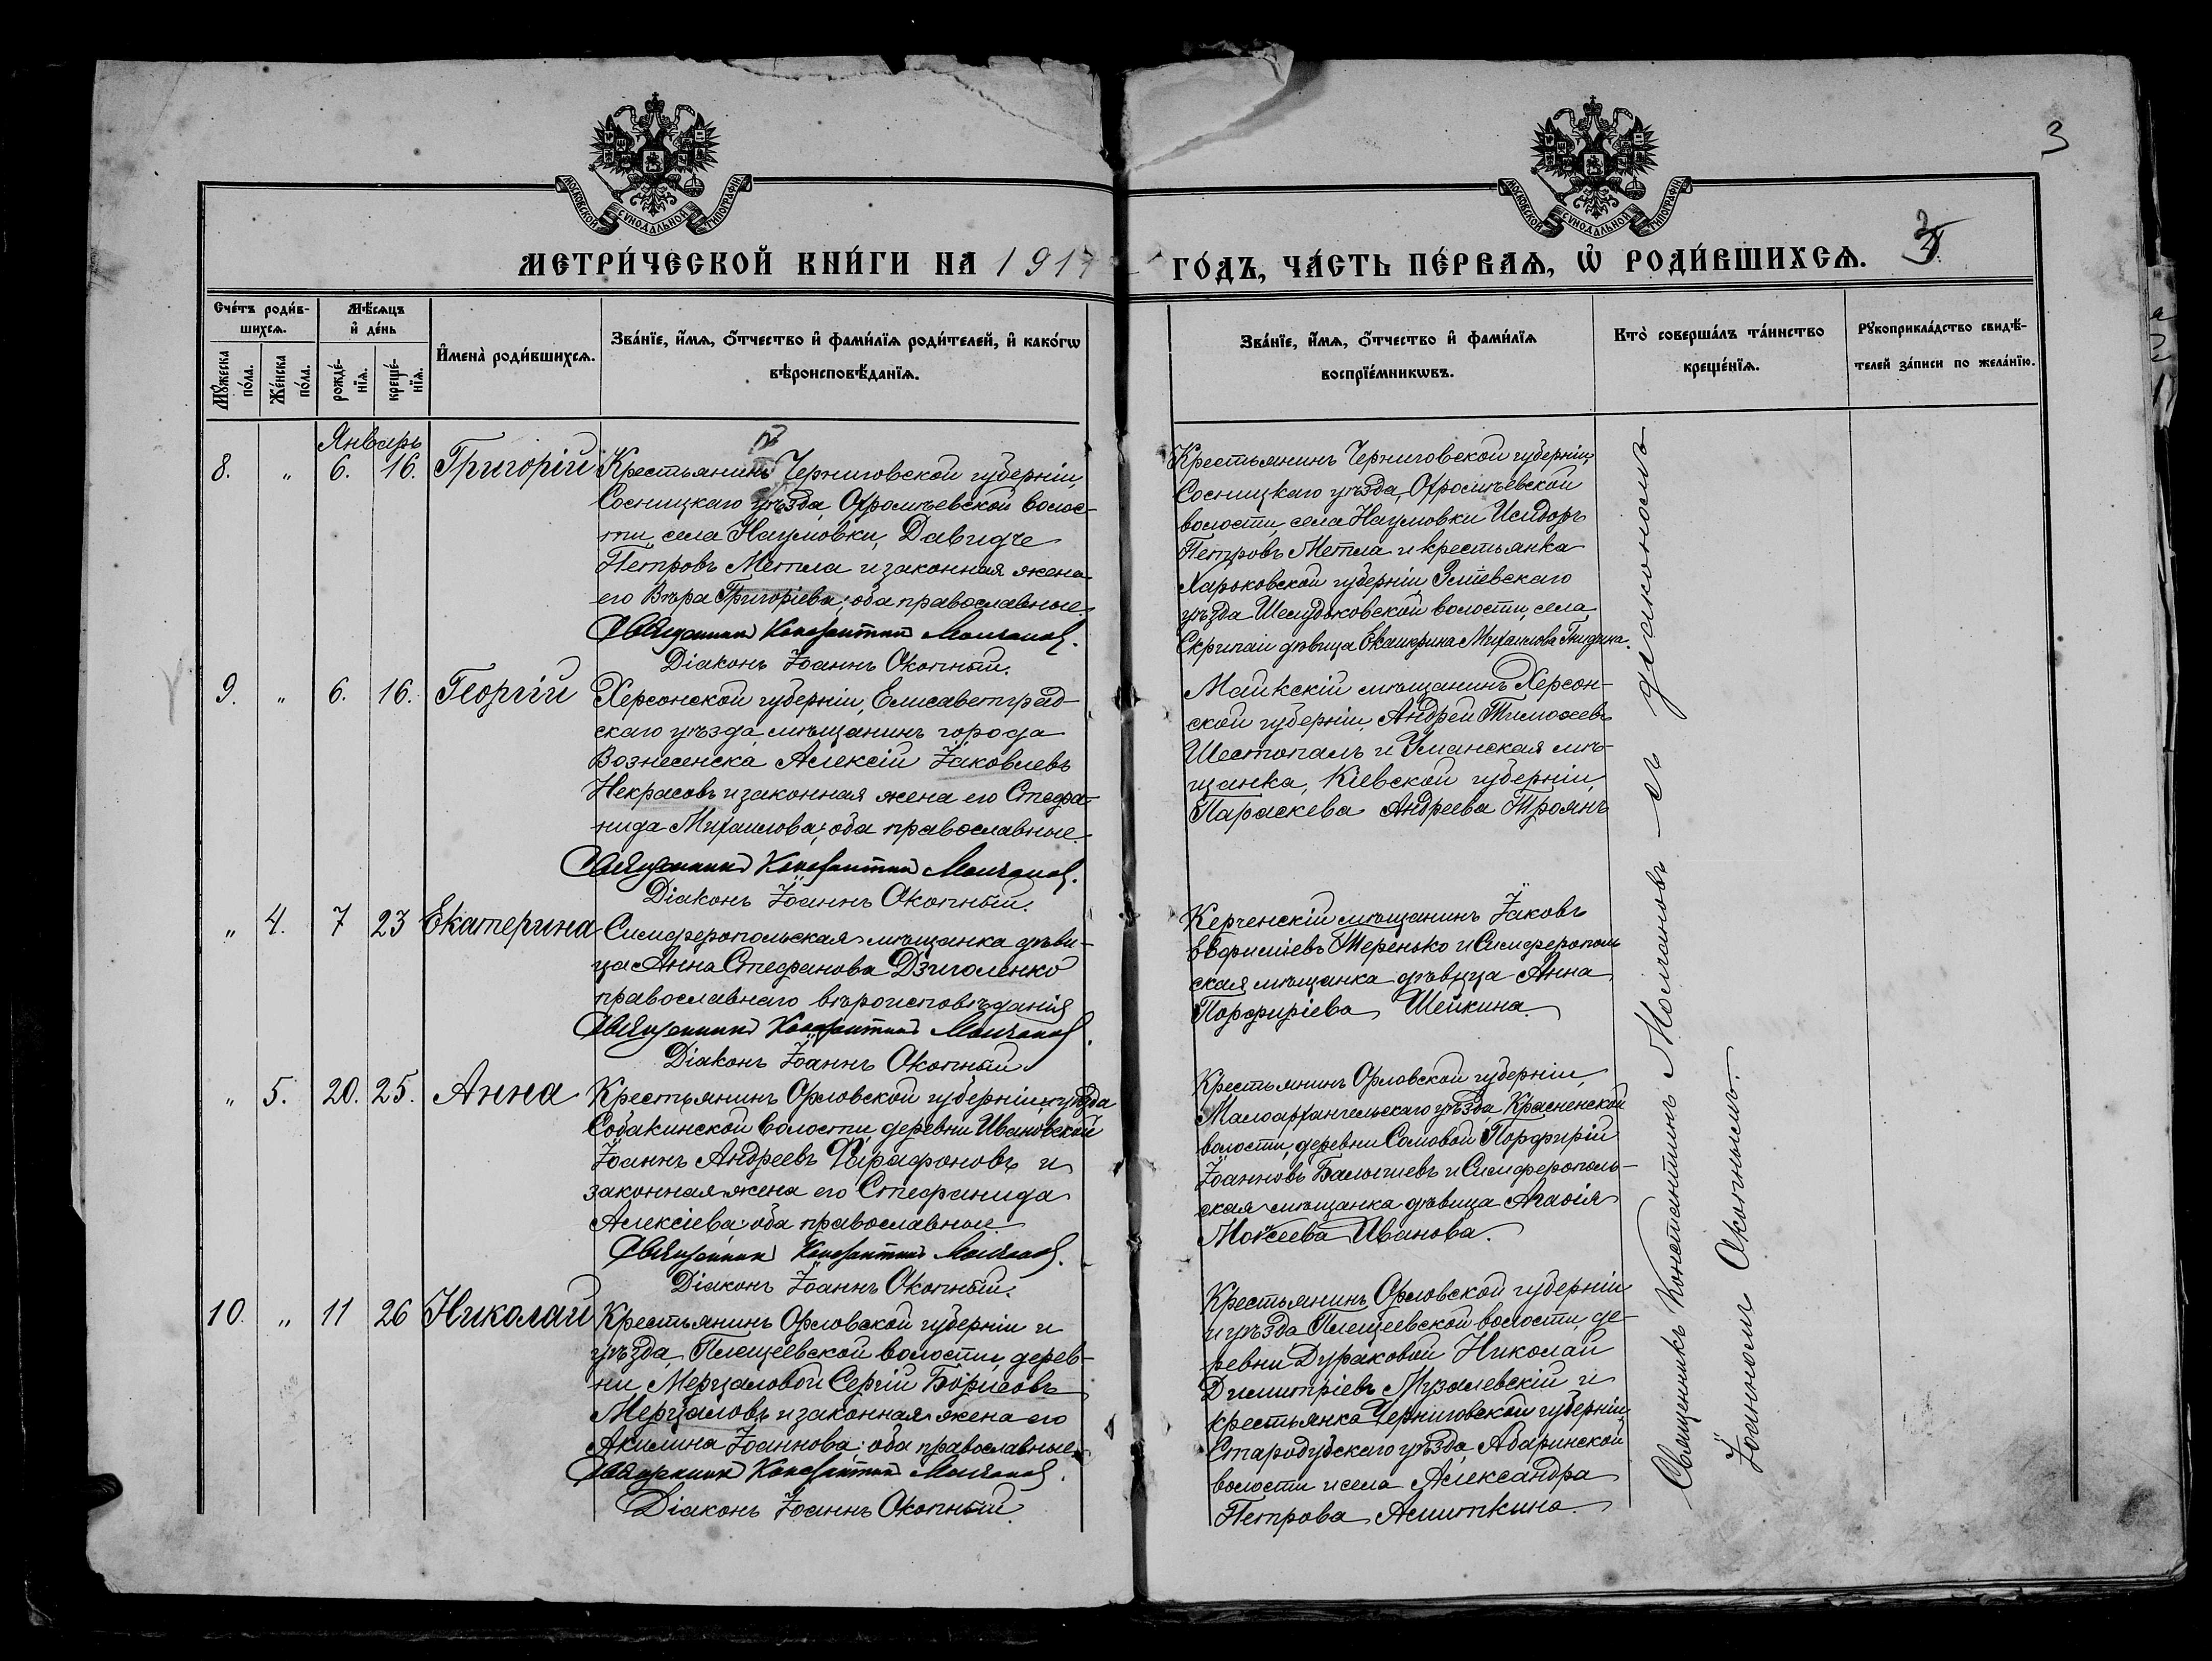 3
МОСКОВСКОЙ СѴНОДАЛЬНОЙ ТИПОГРАФІИ
МОСКОВСКОЙ СѴНОДАЛЬНОЙ ТИПОГРАФІИ
МЕТРИ́ЧЕСКОЙ КНИ́ГИ НА 1917 ГО́ДЪ, ЧА́СТЬ ПЕ́РВАѦ, Ѽ РОДИ́ВШИХСѦ. 3
Сче́тъ роди́в-
шихсѧ.
Мѹ́жеска по́ла.
Же́нска по́ла.
Мѣ́сѧцъ
и҆ де́нь
рожде́-нїѧ.
креще́-нїѧ.
И҆мена̀ роди́вшихсѧ.
Зва́нїе, и҆́мѧ, ѻ҆́тчество и҆ фами́лїѧ роди́телей, и҆ како́гѡ
вѣроисповѣ́данїѧ.
Зва́нїе, и҆́мѧ, ѻ҆́тчество и҆ фами́лїѧ
воспрїе́мникѡвъ.
Кто̀ соверша́лъ та́инство
креще́нїѧ.
Рѹкоприкла́дство свидѣ́-
телей за́писи по жела́нїю.
Январь
8. „ 6. 16. Григорій
Крестьянинъ Черниговской губерніи,
Сосницкаго уѣзда, волос-
ти, села Наумовки, Давидъ
Петровъ Метла и законная жена
его Вѣра Григоріева; оба православные.
Священникъ Константинъ Молчановъ.
Діаконъ Іоаннъ Окопный.
Крестьянинъ Черниговской губерніи,
Сосницкаго уѣзда,
волости, села Наумовки Исидоръ
Петровъ Метла и крестьянка
Харьковской губерніи Зміевскаго
уѣзда Шелудьковской волости, села
Скрипаи дѣвица Екатерина Михаилова
9. „ 6. 16. Георгій
Херсонской губерніи, Елисаветград-
скаго уѣзда мѣщанинъ города
Вознесенска Алексій Іаковлевъ
Некрасовъ и законная жена его Стефа-
нида Михаилова; оба православные.
Священникъ Константинъ Молчановъ.
Діаконъ Іоаннъ Окопный.
мѣщанинъ Херсон-
ской губерніи, Андрей Тимоѳеевъ
Шестопалъ и Уманская мѣ-
щанка, Кіевской губерніи,
Параскева Андреева Троянъ
„ 4. 7 23 Екатерина
Симферопольская мѣщанка дѣви-
ца Анна Стефанова Дзиголенко
православнаго вѣроисповѣданія
Священникъ Константинъ Молчановъ.
Діаконъ Іоаннъ Окопный
Керченскій мѣщанинъ Іаковъ
Теренько и Симферополь
ская мѣщанка дѣвица Анна
Порфиріева Шейкина.
„ 5. 20. 25. Анна
Крестьянинъ Орловской губерніи и уѣзда
Собакинской волости деревни Ивановской
Іоаннъ Андреевъ Фарафоновъ и
законная жена его Стефанида
Алексіева: оба православные
Священникъ Константинъ Молчановъ.
Діаконъ Іоаннъ Окопный.
Крестьянинъ Орловской губерніи
Малоархангельскаго уѣзда, Красненской
волости, деревни Сомовой Порфирій
Іоанновъ и Симферополь-
ская мѣщанка дѣвица Агаѳія
Моисеева Иванова.
10. „ 11 26 Николай
Крестьянинъ Орловской губерніи и
уѣзда, Плещеевской волости, дерев-
ни Мерцаловой Сергій Борисовъ
Мерцаловъ и законная жена его
Акилина Іоаннова: оба православные.
Священникъ Константинъ Молчановъ.
Діаконъ Іоаннъ Окопный.
Крестьянинъ Орловской губерніи
и уѣзда Плещеевской волости, де-
ревни Дураковой Николай
Димитріевъ Музалевскій и
крестьянка Черниговской губерніи,
Стародубскаго уѣзда, Абаринской
волости и села Александра
Петрова Асипкина.
Священникъ Константинъ Молчановъ – съ діакономъ
Іоанномъ Окопнымъ.